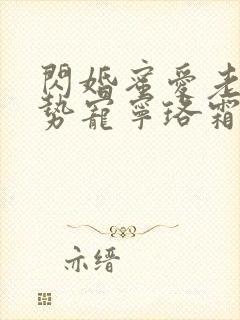 閃婚蜜愛老
勢寵寧珞霜
亦缙